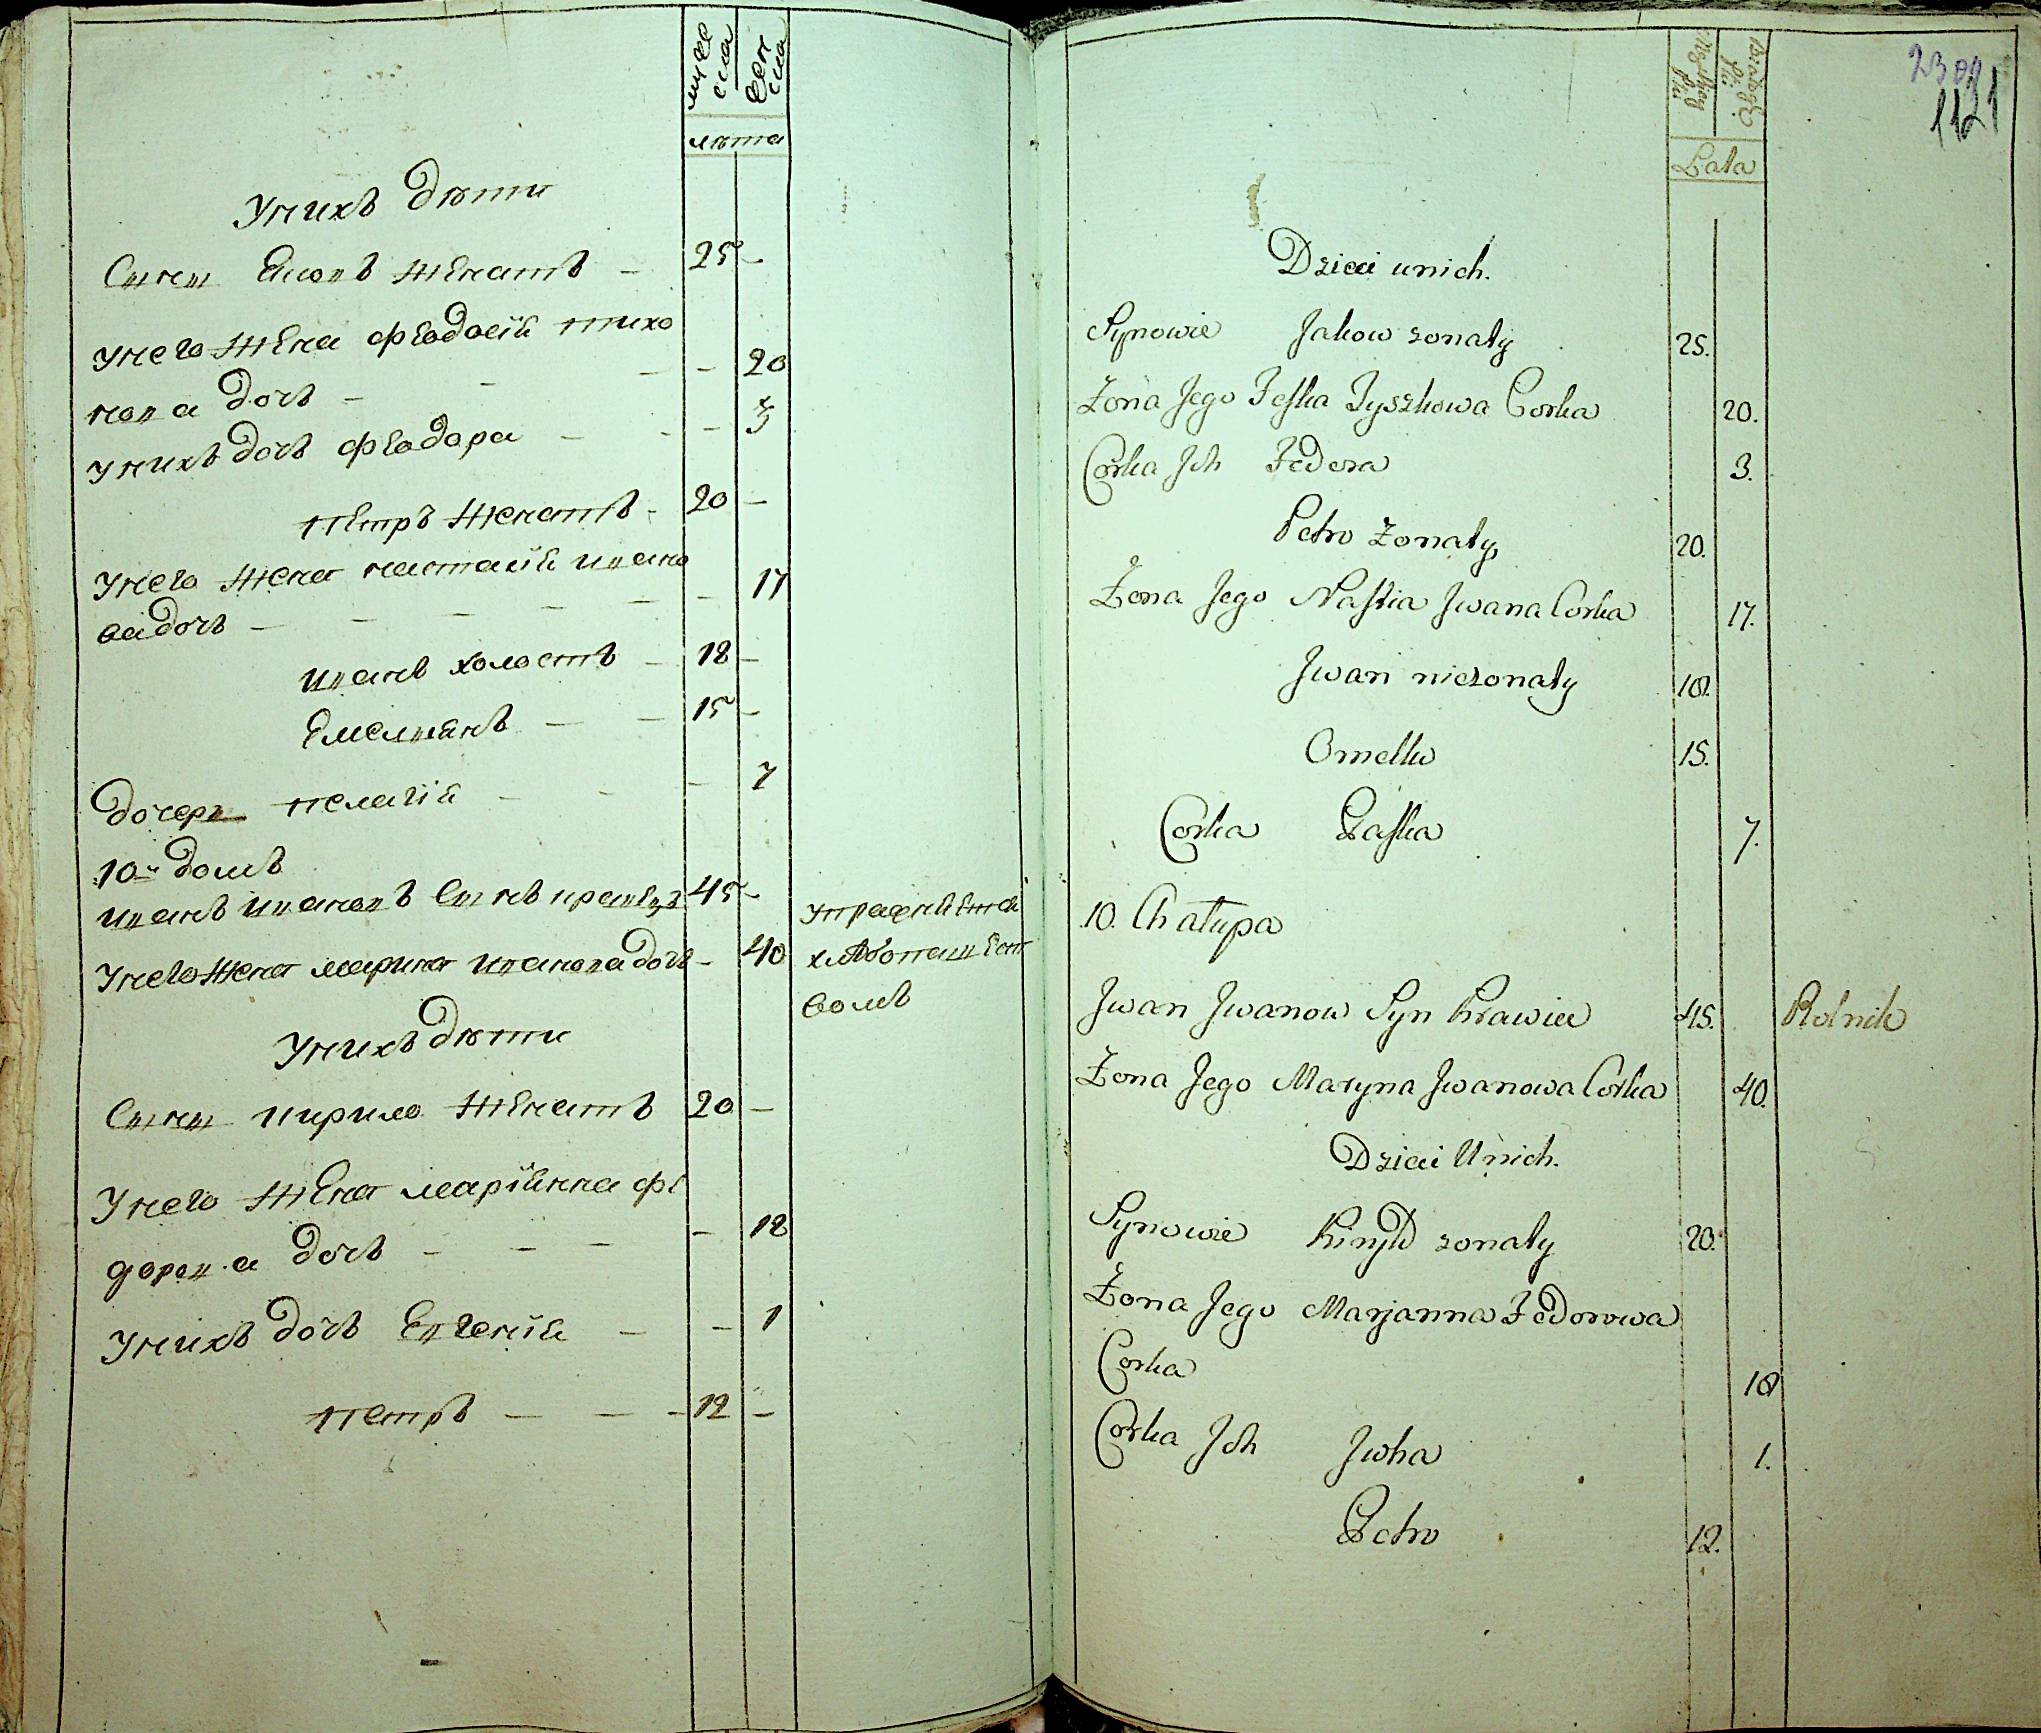 муже
ска
жен
ска
лѣта
У нихъ дѣти
Сыны Яковъ женатъ – 25 –
У него жена феодосія тихо
нова дочь – – – 20
У нихъ дочь феодора – – – 3
петръ женатъ – 20 –
У него жена настасія ивано
ва дочь – – – – – – 17
иванъ холостъ – 18 –
Емелиянъ – – 15 –
дочеръ пелагія – – – 7
10й домъ
иванъ ивановъ Сынъ кравецъ 45 –
У него жена марина иванова дочь – 40
упражняется
хлѣбопашест
вомъ
У нихъ дѣти
Сыны кирило женатъ 20 –
У него жена маріянна фе
дорова дочь – – – – 18
У нихъ дочь Евгенія – – 1
петръ – – – 12 –
2309
1121
Męzkay
Płci
Białogł.
Płci
Lata
Dzieci unich.
Synowie Jakow zonaty 25.
Żona Jego Feska Tyszkowa Corka 20.
Corka Ich Fedora 3.
Petro Żonaty 20.
Żona Jego Nastia Jwana Corka 17.
Jwan niezonaty 18.
Omelko 15.
Corka Paska 7.
10. Chałupa
Jwan Jwanow Syn Krawiec 45. Rolnik
Żona Jego Maryna Jwanowa Corka 40.
Dzieci Unich.
Synowie Kiryło zonaty 20.
Żona Jego Marjanna Fedorowa
Corka 18
Corka Ich Jwha 1.
Petro 12.